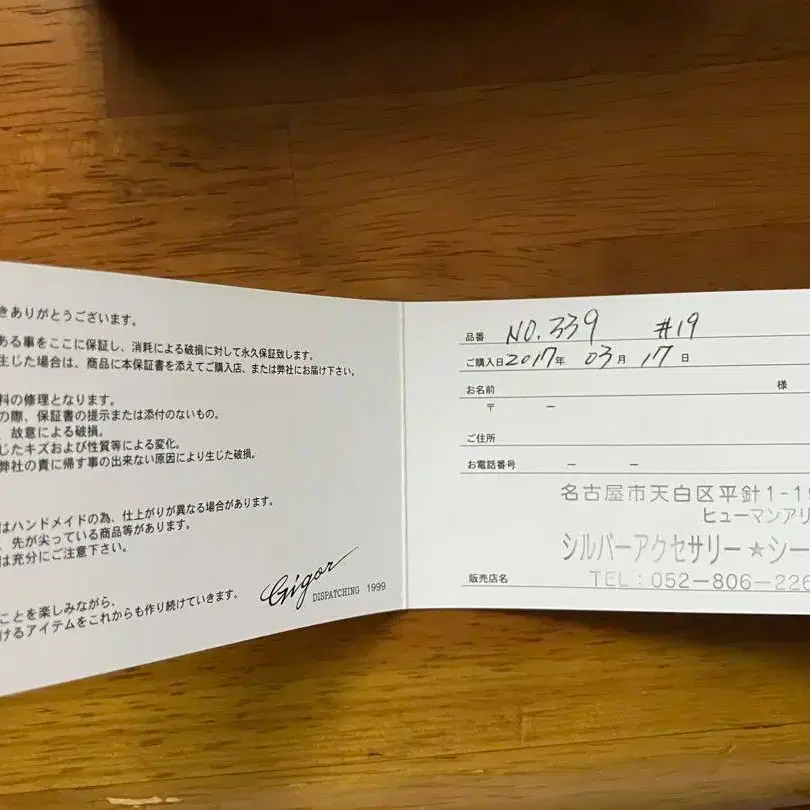 きありがとうございます。
ある事をここに保証し、消耗による破損に対して永久保証致します。
生じた場合は、商品に本保証書を添えてご購入店、または弊社にお届け下さい。
料の修理となります。
の際、保証書の提示または添付のないもの。
、故意による破損。
じたキズおよび性質等による変化。
弊社の責に帰す事の出来ない原因により生じた破損。
はハンドメイドの為、仕上がりが異なる場合があります。
、先が尖っている商品等があります。
は充分にご注意下さい。
ことを楽しみながら、
けるアイテムをこれからも作り続けていきます。
Gigor
DISPATCHING 1999
品番 NO.339 #19
ご購入日 2017年 03月 17日
お名前 様
〒 －
ご住所
お電話番号 － －
名古屋市天白区平針1-19
ヒューマンアリ
シルバーアクセサリー★シー
販売店名 TEL：052－806－226